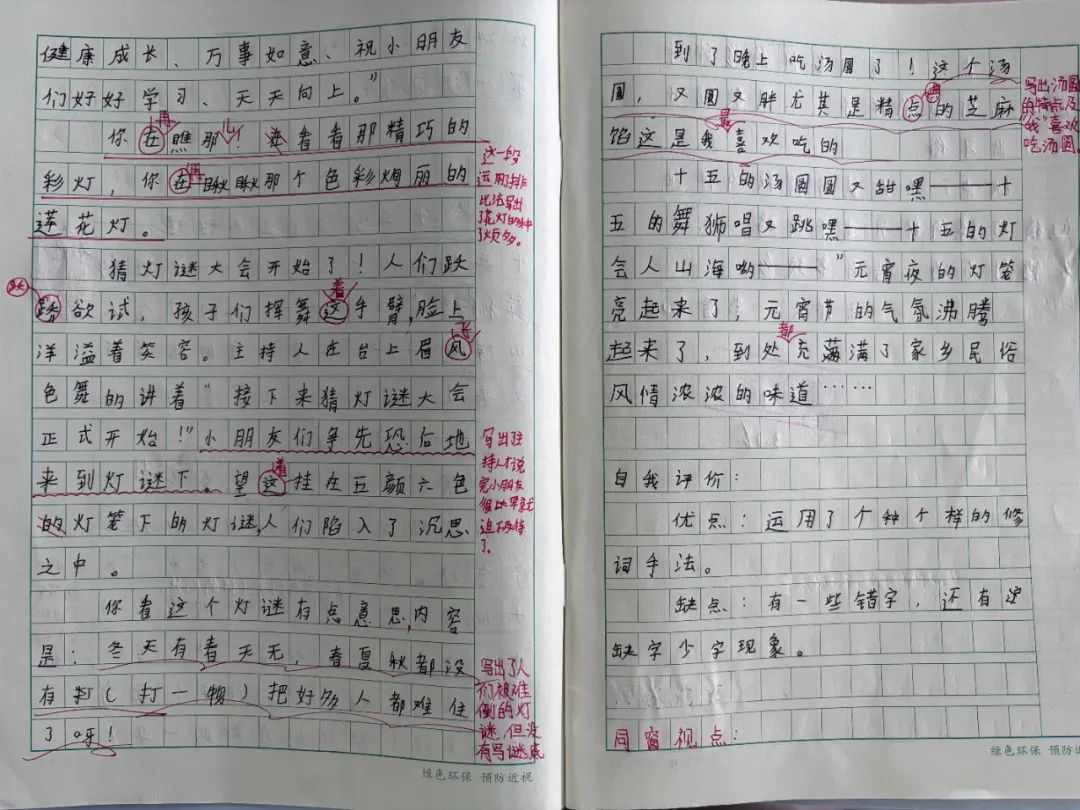 健康成长、万事如意、祝小朋友
们好好学习、天天向上。”
你在瞧那！看看那精巧的
再
个
彩灯，你在瞅瞅那个色彩绚丽的
再
莲花灯。
这一段
运用了排
比法写出
了花灯的种
了烦多。
猜灯谜大会开始了！人们跃
跃
欲试，孩子们挥舞这手臂，脸上
着
洋溢着笑容。主持人在台上眉风
飞
色舞的讲着“接下来猜灯谜大会
正式开始！”小朋友们争先恐后地
来到灯谜下。望这挂在五颜六色
着
的灯笼下的灯谜，人们陷入了沉思
之中。
写出主
持人才说
完小朋友
很
迫不及待
了。
你看这个灯谜有点意思，内容
是：冬天有春天无，春夏秋都没
有打（打一物）把好多人都难住
了呀！
写出了人
们被难
倒的灯
谜，但没
有写谜底
绿色环保 预防近视
到了晚上吃汤圆了！这个汤
圆，又圆又胖尤其是精点的芝麻
馅这是我喜欢吃的
最
写出汤圆
的特点及
“我”喜欢
吃汤圆。
十五的汤圆圆又甜嘿——十
五的舞狮唱又跳嘿——十五的灯
会人山海呦——”元宵夜的灯笼
亮起来了，元宵节的气氛沸腾
起来了，到处充满满了家乡民俗
都
风情浓浓的味道……
自我评价：
优点：运用了个种个样的修
词手法。
缺点：有一些错字，还有
缺字少字现象。
同窗视点：
绿色环保 预防近